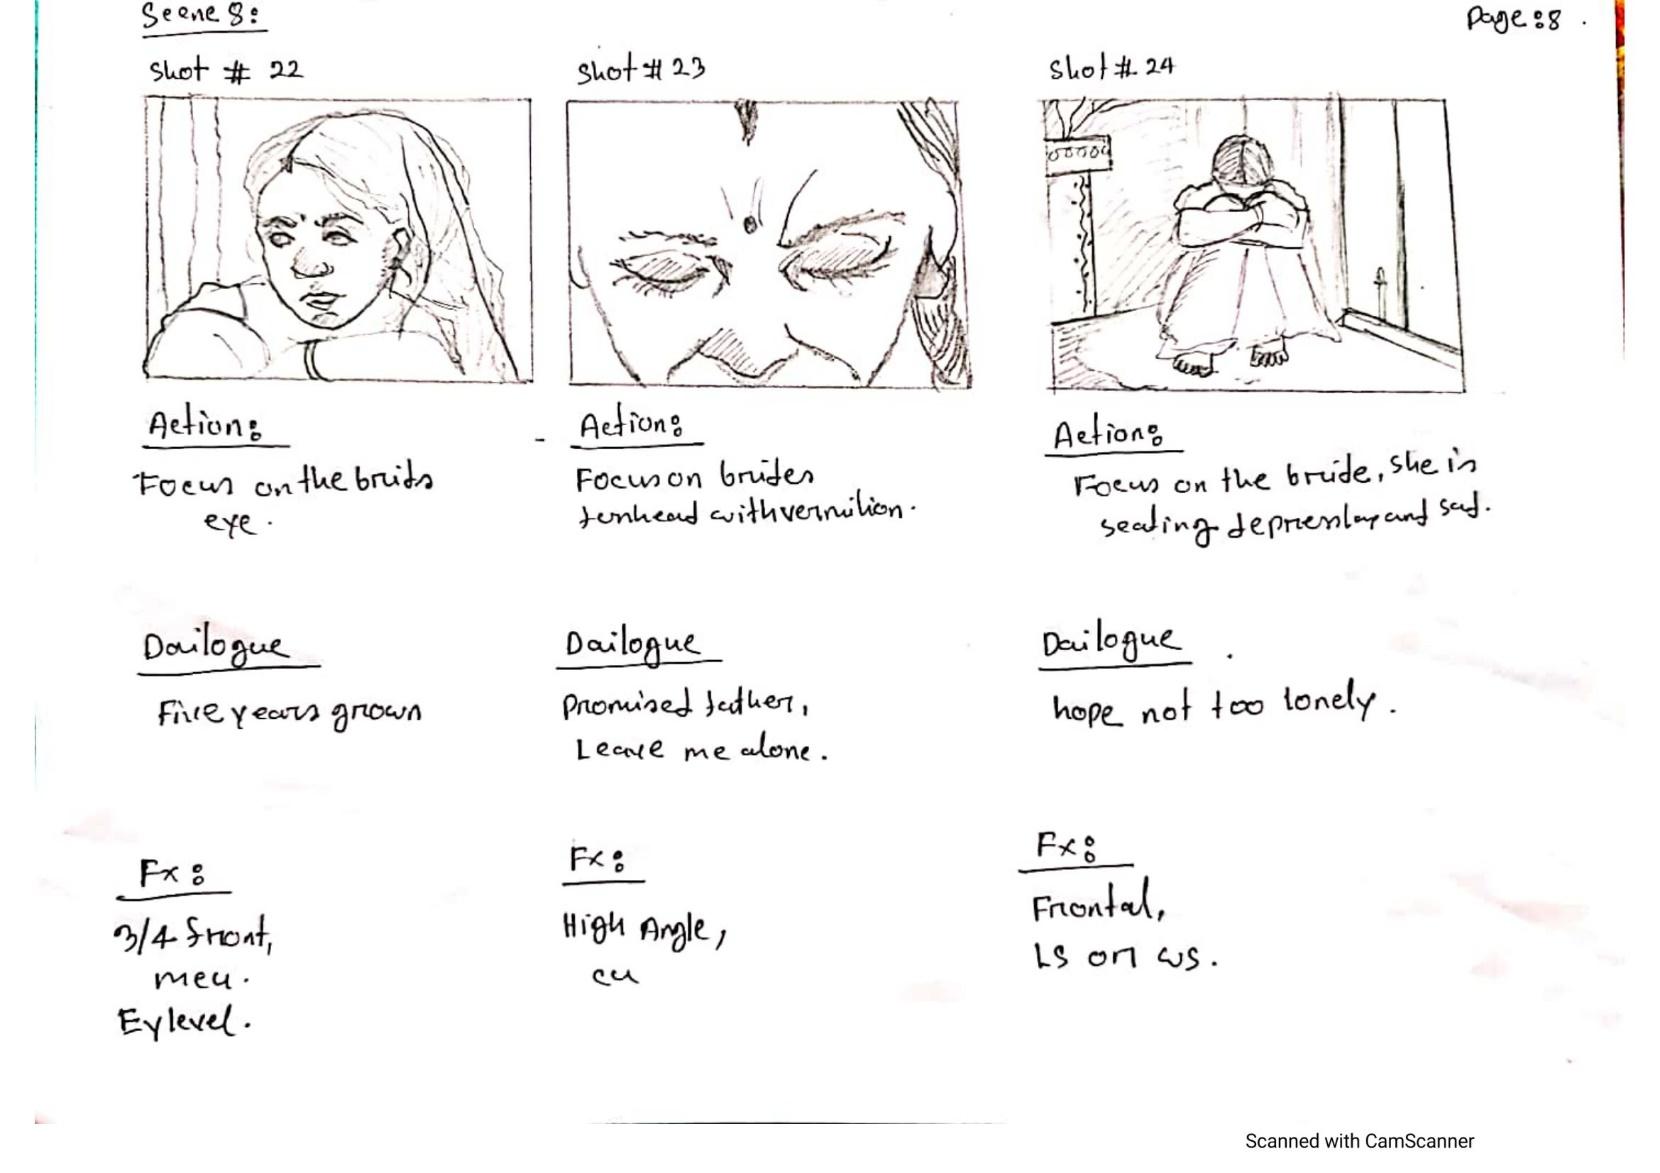 Scene 8:
Page: 8.
Shot # 22
Shot # 23
Shot #. 24
Action:
Focus on the brids
eye.
Action:
Focus on brides
forhead with vermilion.
Action:
Focus on the bride, she is
seating and sad.
Dailogue
Five years grown
Dailogue
Promised father,
Leave me alone.
Dailogue
hope not too lonely.
Fx:
3/4 front,
mcu.
Ey level.
Fx:
High Angle,
cu
Fx:
Frontal,
LS or ws.
Scanned with CamScanner